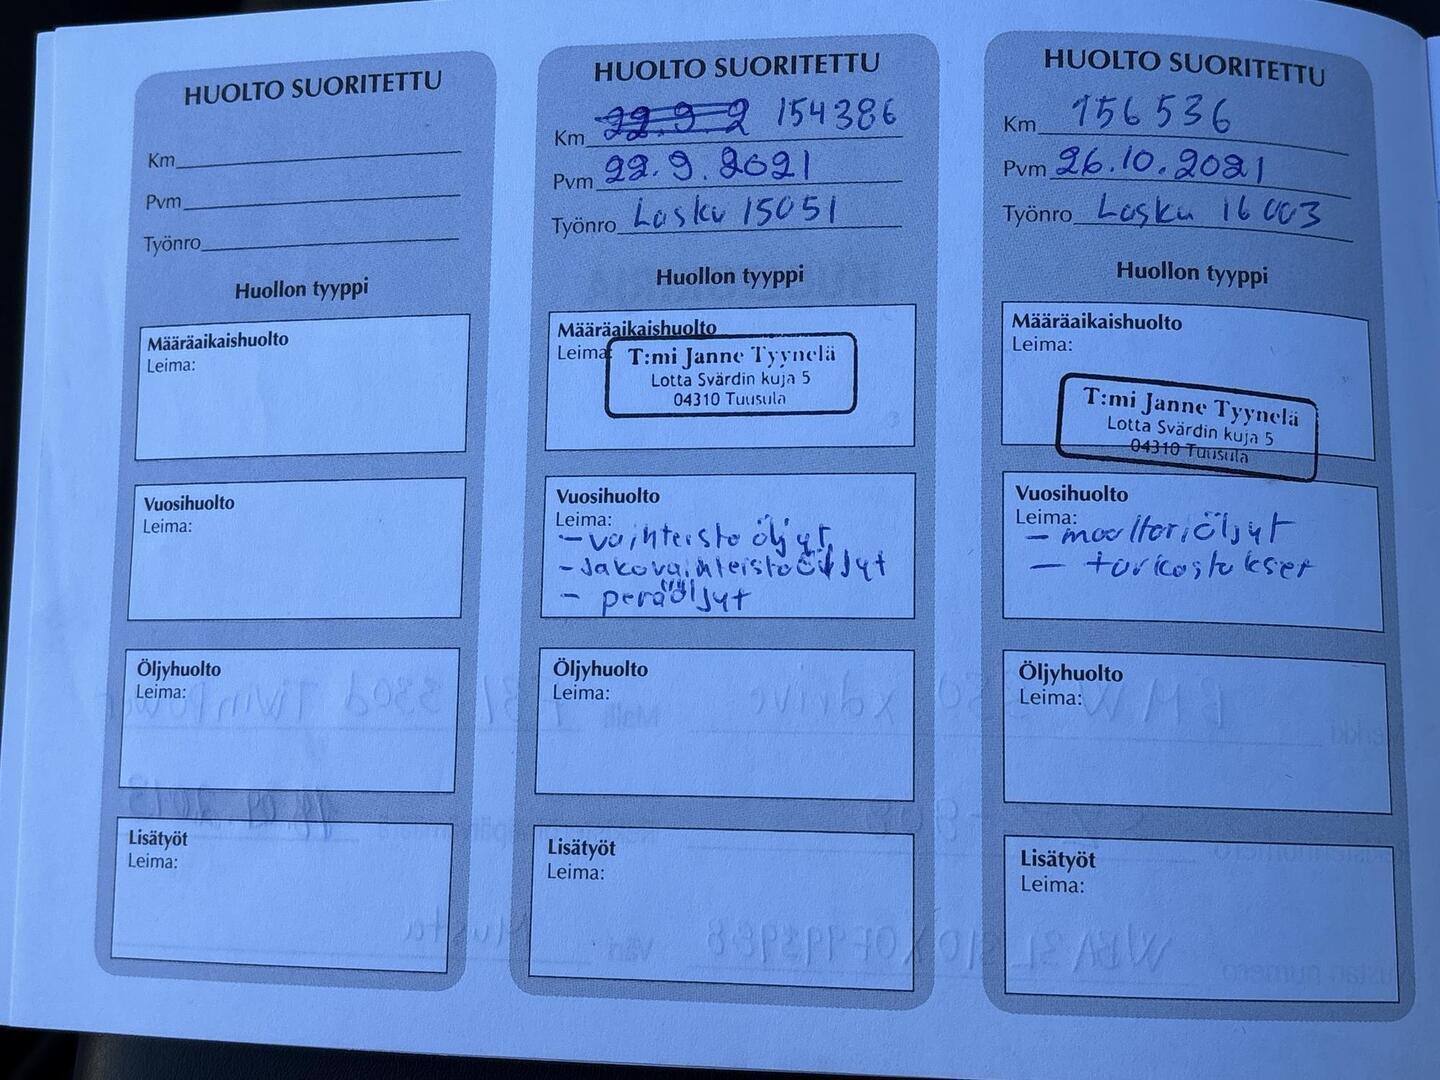 HUOLTO SUORITETTU
Km
Pvm
Työnro
Huollon tyyppi
Määräaikaishuolto
Leima:
Vuosihuolto
Leima:
Öljyhuolto
Leima:
Lisätyöt
Leima:
HUOLTO SUORITETTU
Km 22.9.2 154386
Pvm 22.9.2021
Työnro Lasku 15051
Huollon tyyppi
Määräaikaishuolto
Leima:
T:mi Janne Tyynelä
Lotta Svärdin kuja 5
04310 Tuusula
Vuosihuolto
Leima:
- vaihteisto öljyt
- Jakovaihteistoöljyt
- peräöljyt
Öljyhuolto
Leima:
Lisätyöt
Leima:
HUOLTO SUORITETTU
Km 156536
Pvm 26.10.2021
Työnro Lasku 16003
Huollon tyyppi
Määräaikaishuolto
Leima:
T:mi Janne Tyynelä
Lotta Svärdin kuja 5
04310 Tuusula
Vuosihuolto
Leima:
- moottoriöljyt
- tarkastukset
Öljyhuolto
Leima:
Lisätyöt
Leima: